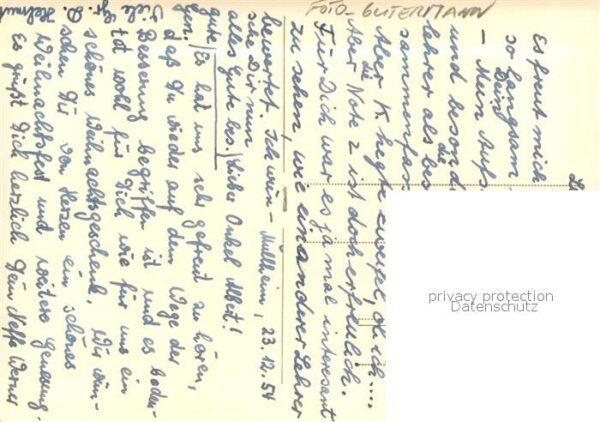 FOTO-GUTERMANN
Es freut mich
so langsam
Dein
- Mein Aufs
und besond
die
lehrer als bes
sammenfas
die
Aber K. hegt Zweifel, ob ich ....
Aber Note 2 ist doch erfreulich.
Für Dich war es ja mal interessant
zu sehen, wie ein anderer Lehrer
bewertet. Ich wün-
sche Dir nun
alles Gute bes.
gute
Mülheim, 23.12.54
Lieber Onkel Albert!
Es hat uns sehr gefreut zu hören,
daß Du wieder auf dem Wege der
Besserung begriffen ist und es bedeu-
tet wohl für Dich wie für uns ein
schönes Weihnachtsgeschenk. Wir wün-
schen Dir von Herzen ein schönes
Weihnachtsfest und weitere Genesung.
Es grüßt Dich herzlich Dein Neffe Werner
Viele Gr. D. Helmut
privacy protection
Datenschutz